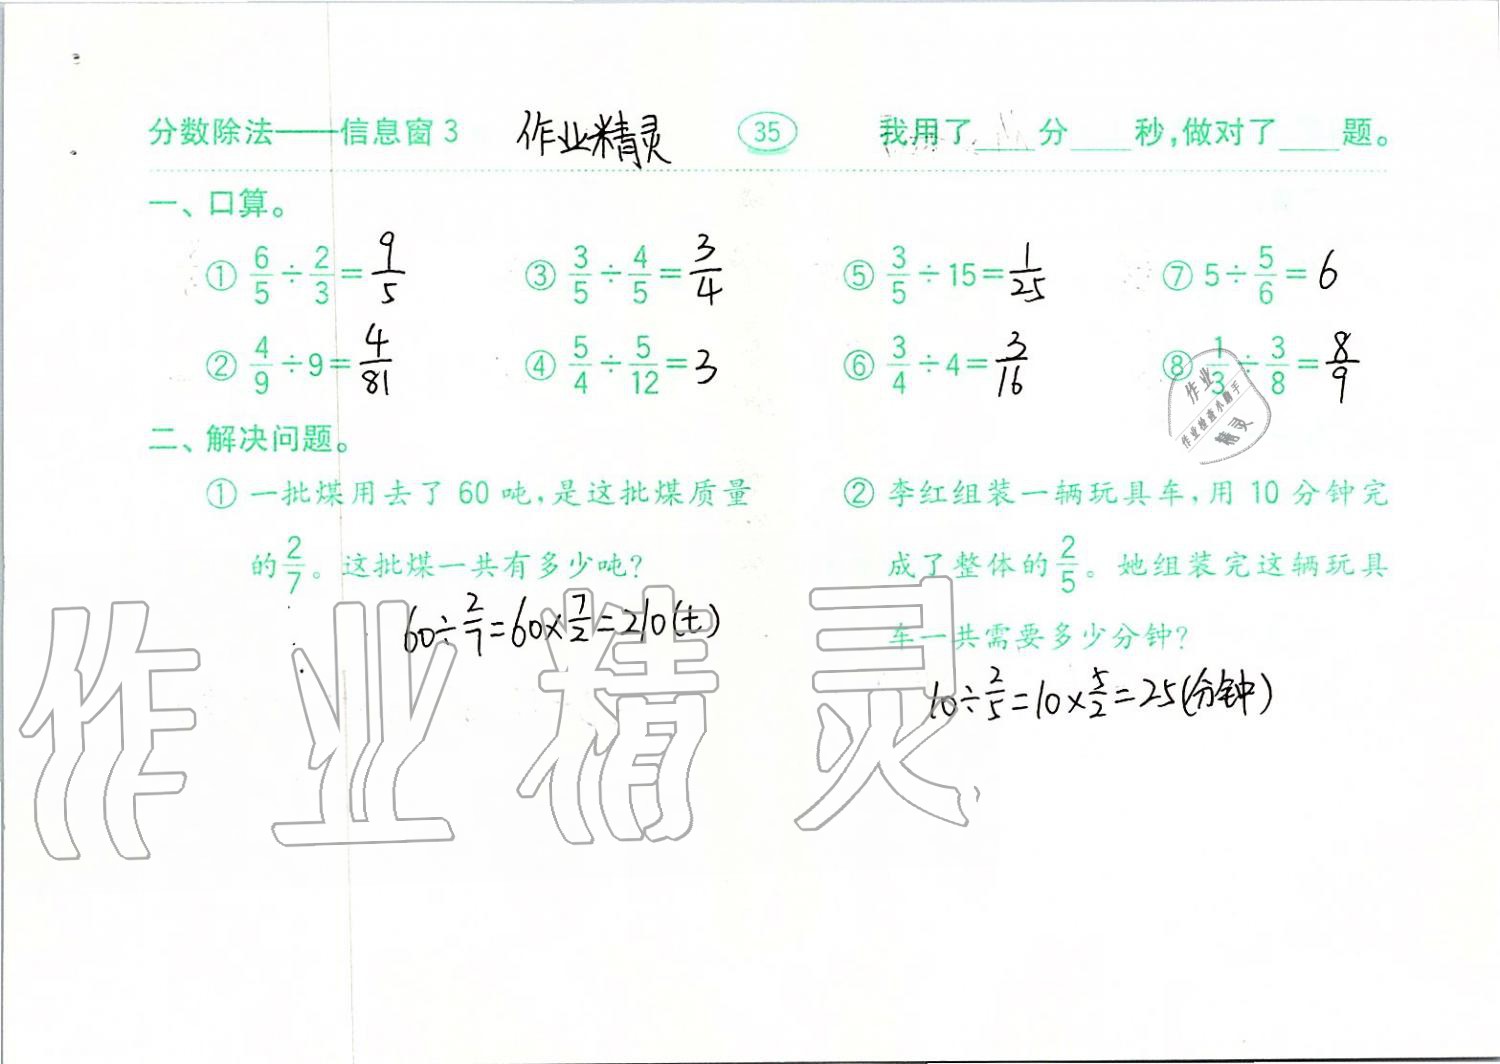 分数除法——信息窗3 作业精灵 35 我用了____分____秒,做对了____题。
一、口算。
① 6/5 ÷ 2/3 = 9/5 ③ 3/5 ÷ 4/5 = 3/4 ⑤ 3/5 ÷ 15 = 1/25 ⑦ 5 ÷ 5/6 = 6
② 4/9 ÷ 9 = 4/81 ④ 5/4 ÷ 5/12 = 3 ⑥ 3/4 ÷ 4 = 3/16 ⑧ 1/3 ÷ 3/8 = 8/9
作业
作业检查小助手
精灵
二、解决问题。
① 一批煤用去了60吨,是这批煤质量
的2/7。这批煤一共有多少吨?
60÷2/7=60×7/2=210(t)
② 李红组装一辆玩具车,用10分钟完
成了整体的2/5。她组装完这辆玩具
车一共需要多少分钟?
10÷2/5=10×5/2=25(分钟)
作业精灵